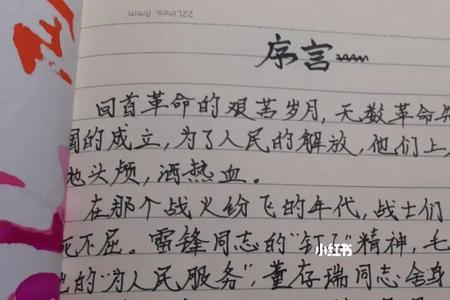 22Lines. 8mm
序言
回首革命的艰苦岁月,无数革命
国的成立,为了人民的解放,他们上
头颅,洒热血。
在那个战火纷飞的年代,战士们
不屈。雷锋同志的"钉子"精神,毛
的"为人民服务",董存瑞同志舍身
小红书